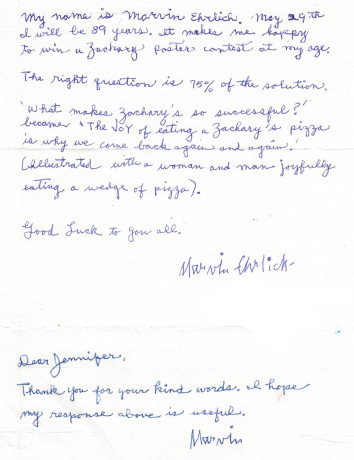 My name is Marvin Ehrlich. May 29th
I will be 89 years. It makes me happy
to win a Zachary poster contest at my age.
The right question is 75% of the solution.
'What makes Zachary's so successful?'
became 'The JOY of eating a Zachary's pizza
is why we come back again and again.'
(Illustrated with a woman and man joyfully
eating a wedge of pizza).
Good Luck to you all.
Marvin Ehrlich
Dear Jennifer,
Thank you for your kind words. I hope
my response above is useful.
Marvin